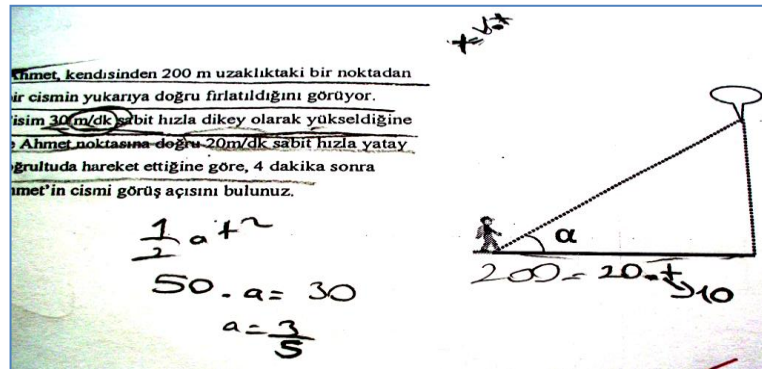 x=v.t
hmet, kendisinden 200 m uzaklıktaki bir noktadan
ir cismin yukarıya doğru fırlatıldığını görüyor.
isim 30 m/dk sabit hızla dikey olarak yükseldiğine
Ahmet noktasına doğru 20m/dk sabit hızla yatay
ğrultuda hareket ettiğine göre, 4 dakika sonra
met'in cismi görüş açısını bulunuz.
1/2 at²
50.a=30
a=3/5
α
200=20.t
10